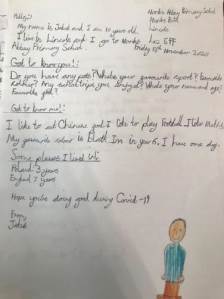 Monks Abbey Primary School
Monks Road
Lincoln
Hello!
My name is Jakub and I am 10 year old.
I live in Lincoln and I go to Monks
Abbey Primary School.
Friday November 2020
Got to know you!:
Do you have any pets? What's your favourite sport? Favourite
colour? Any school trips your enjoyed? What's your name and age?
Got to know me!:
I like to eat Chinese and I like to play football. I
My favourite colour is in year 6. I have one dog.
Some places I lived in:
Poland 3 years
England 7 years
Hope you're doing good during Covid-19
From
Jakub